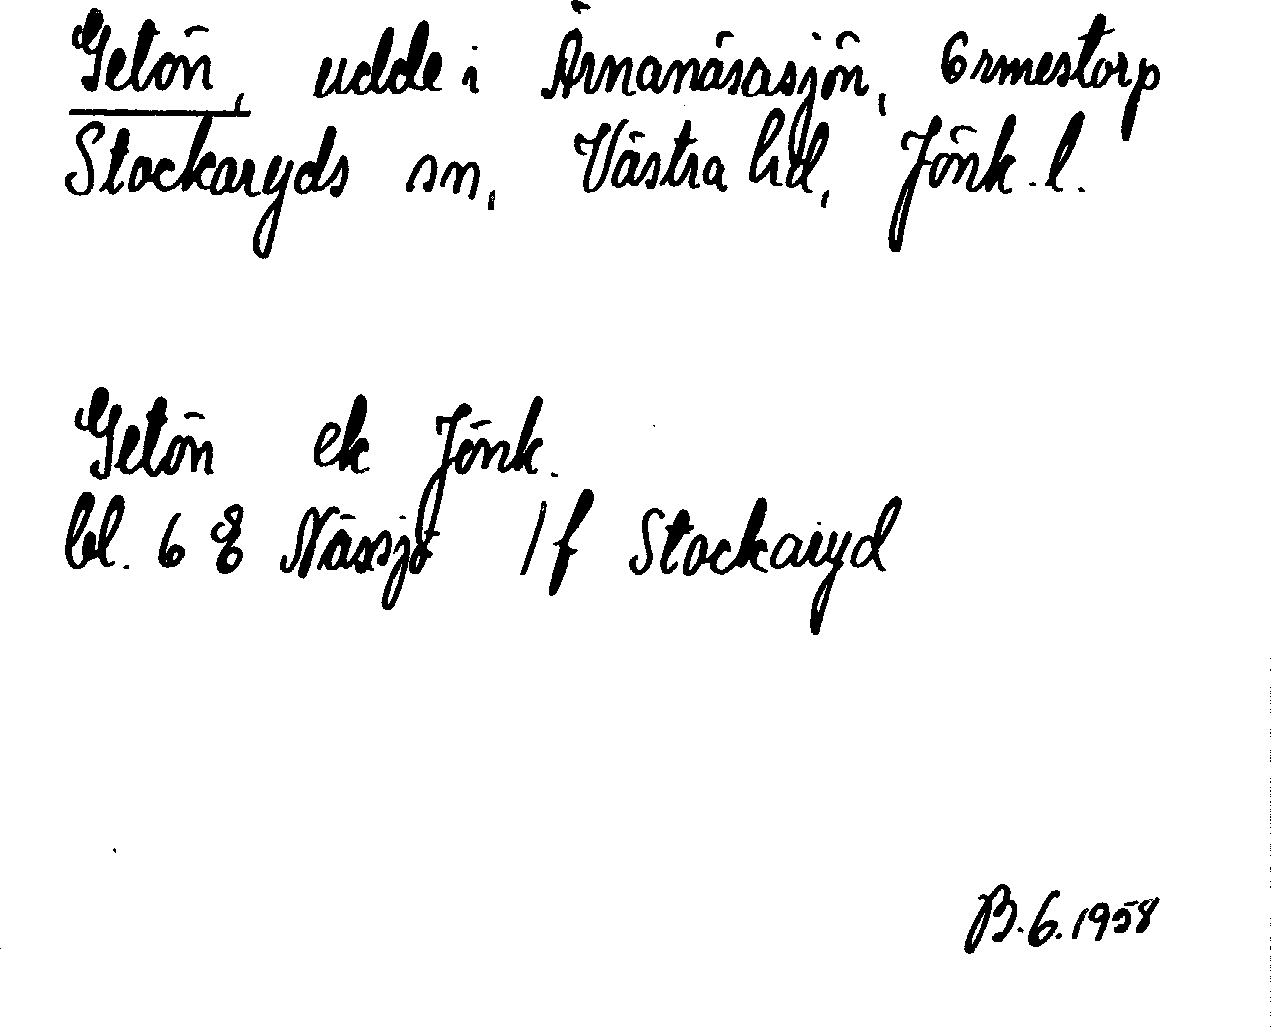 Getön, udde i Årnanäsasjön, Ormestorp
Stockaryds sn, Västra hd, Jönk. l.
Getön ek Jönk.
bl. 6 8 Nässjö / f Stockaryd
B.G. 1958